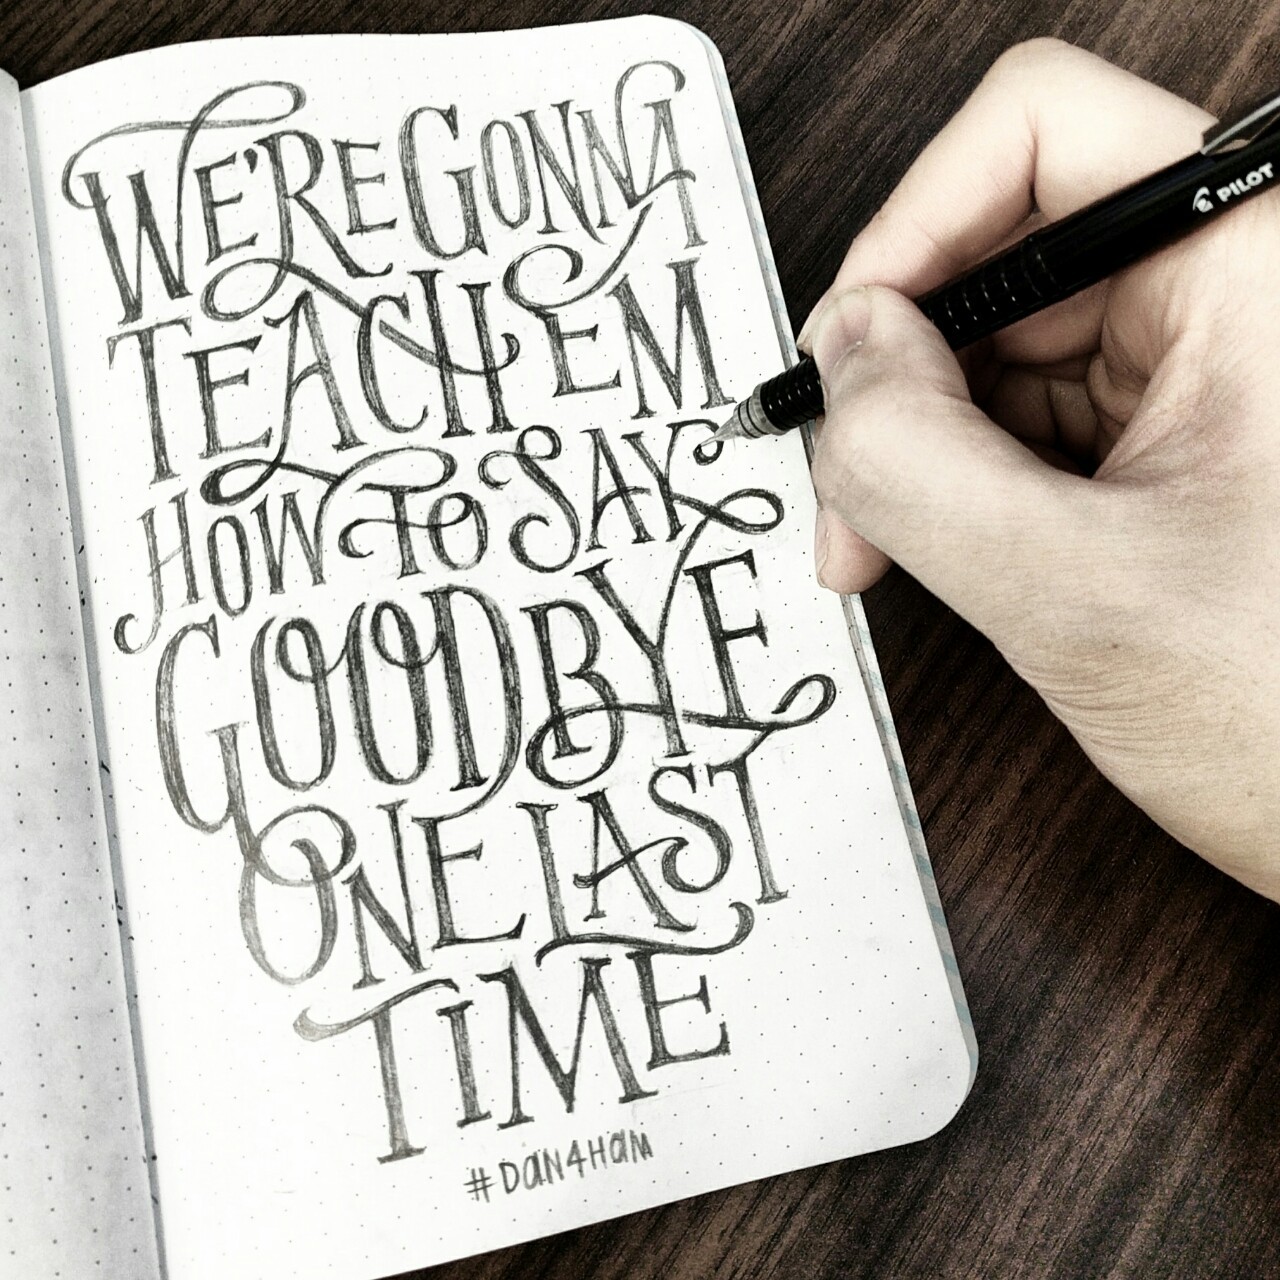 WE'RE GONNA
TEACH 'EM
HOW TO SAY
GOODBYE
ONE LAST
TIME
#DAN4HAM
PILOT